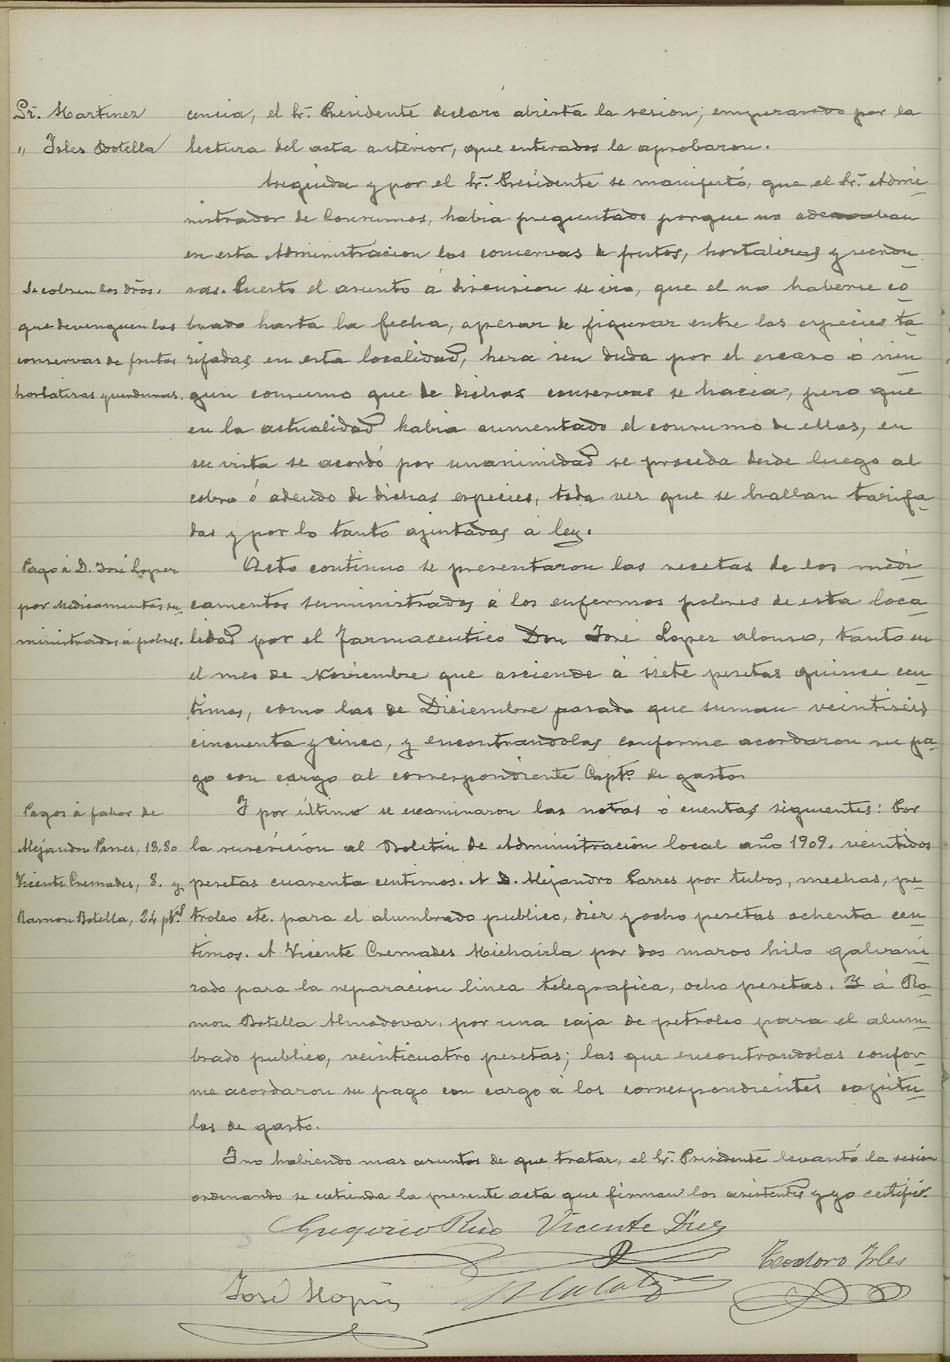 Sr. Martinez
" Isles Botella
cencia, el Sr. Presidente declaró abierta la sesion; empezando por la
lectura del acta anterior, que enterados la aprobaron.
Seguida y por el Sr. Presidente se manifestó, que el Sr. Admi-
nistrador de Consumos, habia preguntado porque no adeudaban
en esta Administracion las conservas de frutas, hortalizas y verdu-
ras. Puesto el asunto á discusion se vio, que el no haberse co-
brado hasta la fecha, apesar de figurar entre las especies ta-
rifadas en esta localidad, hera sin duda por el escaso ó nin-
gun consumo que de dichas conservas se hacia, pero que
en la actualidad habia aumentado el consumo de ellas, en
su vista se acordó por unanimidad se proceda desde luego al
cobro ó adeudo de dichas especies, toda vez que se hallan tarifa-
das y por lo tanto ajustadas á ley.
Se cobren los dros.
que devenguen las
conservas de frutas
hortalizas y verduras.
Acto continuo se presentaron las recetas de los medi-
camentos suministrados á los enfermos pobres de esta loca-
lidad por el Farmaceutico Don José Lopez Alonso, tanto en
el mes de Noviembre que asciende á siete pesetas quince cen-
timos, como las de Diciembre pasado que suman veintiseis
cincuenta y cinco, y encontrandolas conforme acordaron su pa-
go con cargo al correspondiente Capto. de gastos
Pago á D. José Lopez
por Medicamentos su
ministrados á pobres.
Y por último se examinaron las notas ó cuentas siguientes: Por
la suscricion al Boletin de Administración local año 1909. veintidos
pesetas cuarenta centimos. A D. Alejandro Parres por tubos, mechas, pe-
troleo etc. para el alumbrado publico, diez y ocho pesetas ochenta cen-
timos. A Vicente Cremades Michavila por dos mazos hilo galvani-
zado para la reparacion linea telegrafica, ocho pesetas. Y á Ra-
mon Botella Almodovar, por una caja de petroleo para el alum-
brado publico, veinticuatro pesetas; las que encontrandolas confor-
me acordaron su pago con cargo á los correspondientes capitu-
los de gasto.
Pagos á favor de
Alejandro Parres, 18,80
Vicente Cremades, 8. y
Ramon Botella, 24 pts.
Y no habiendo mas asuntos de que tratar, el Sr. Presidente levantó la sesion
ordenando se extienda la presente acta que firman los asistentes y yo certifico.
Gregorio Rico Vicente Diez
Teodoro Isles
José